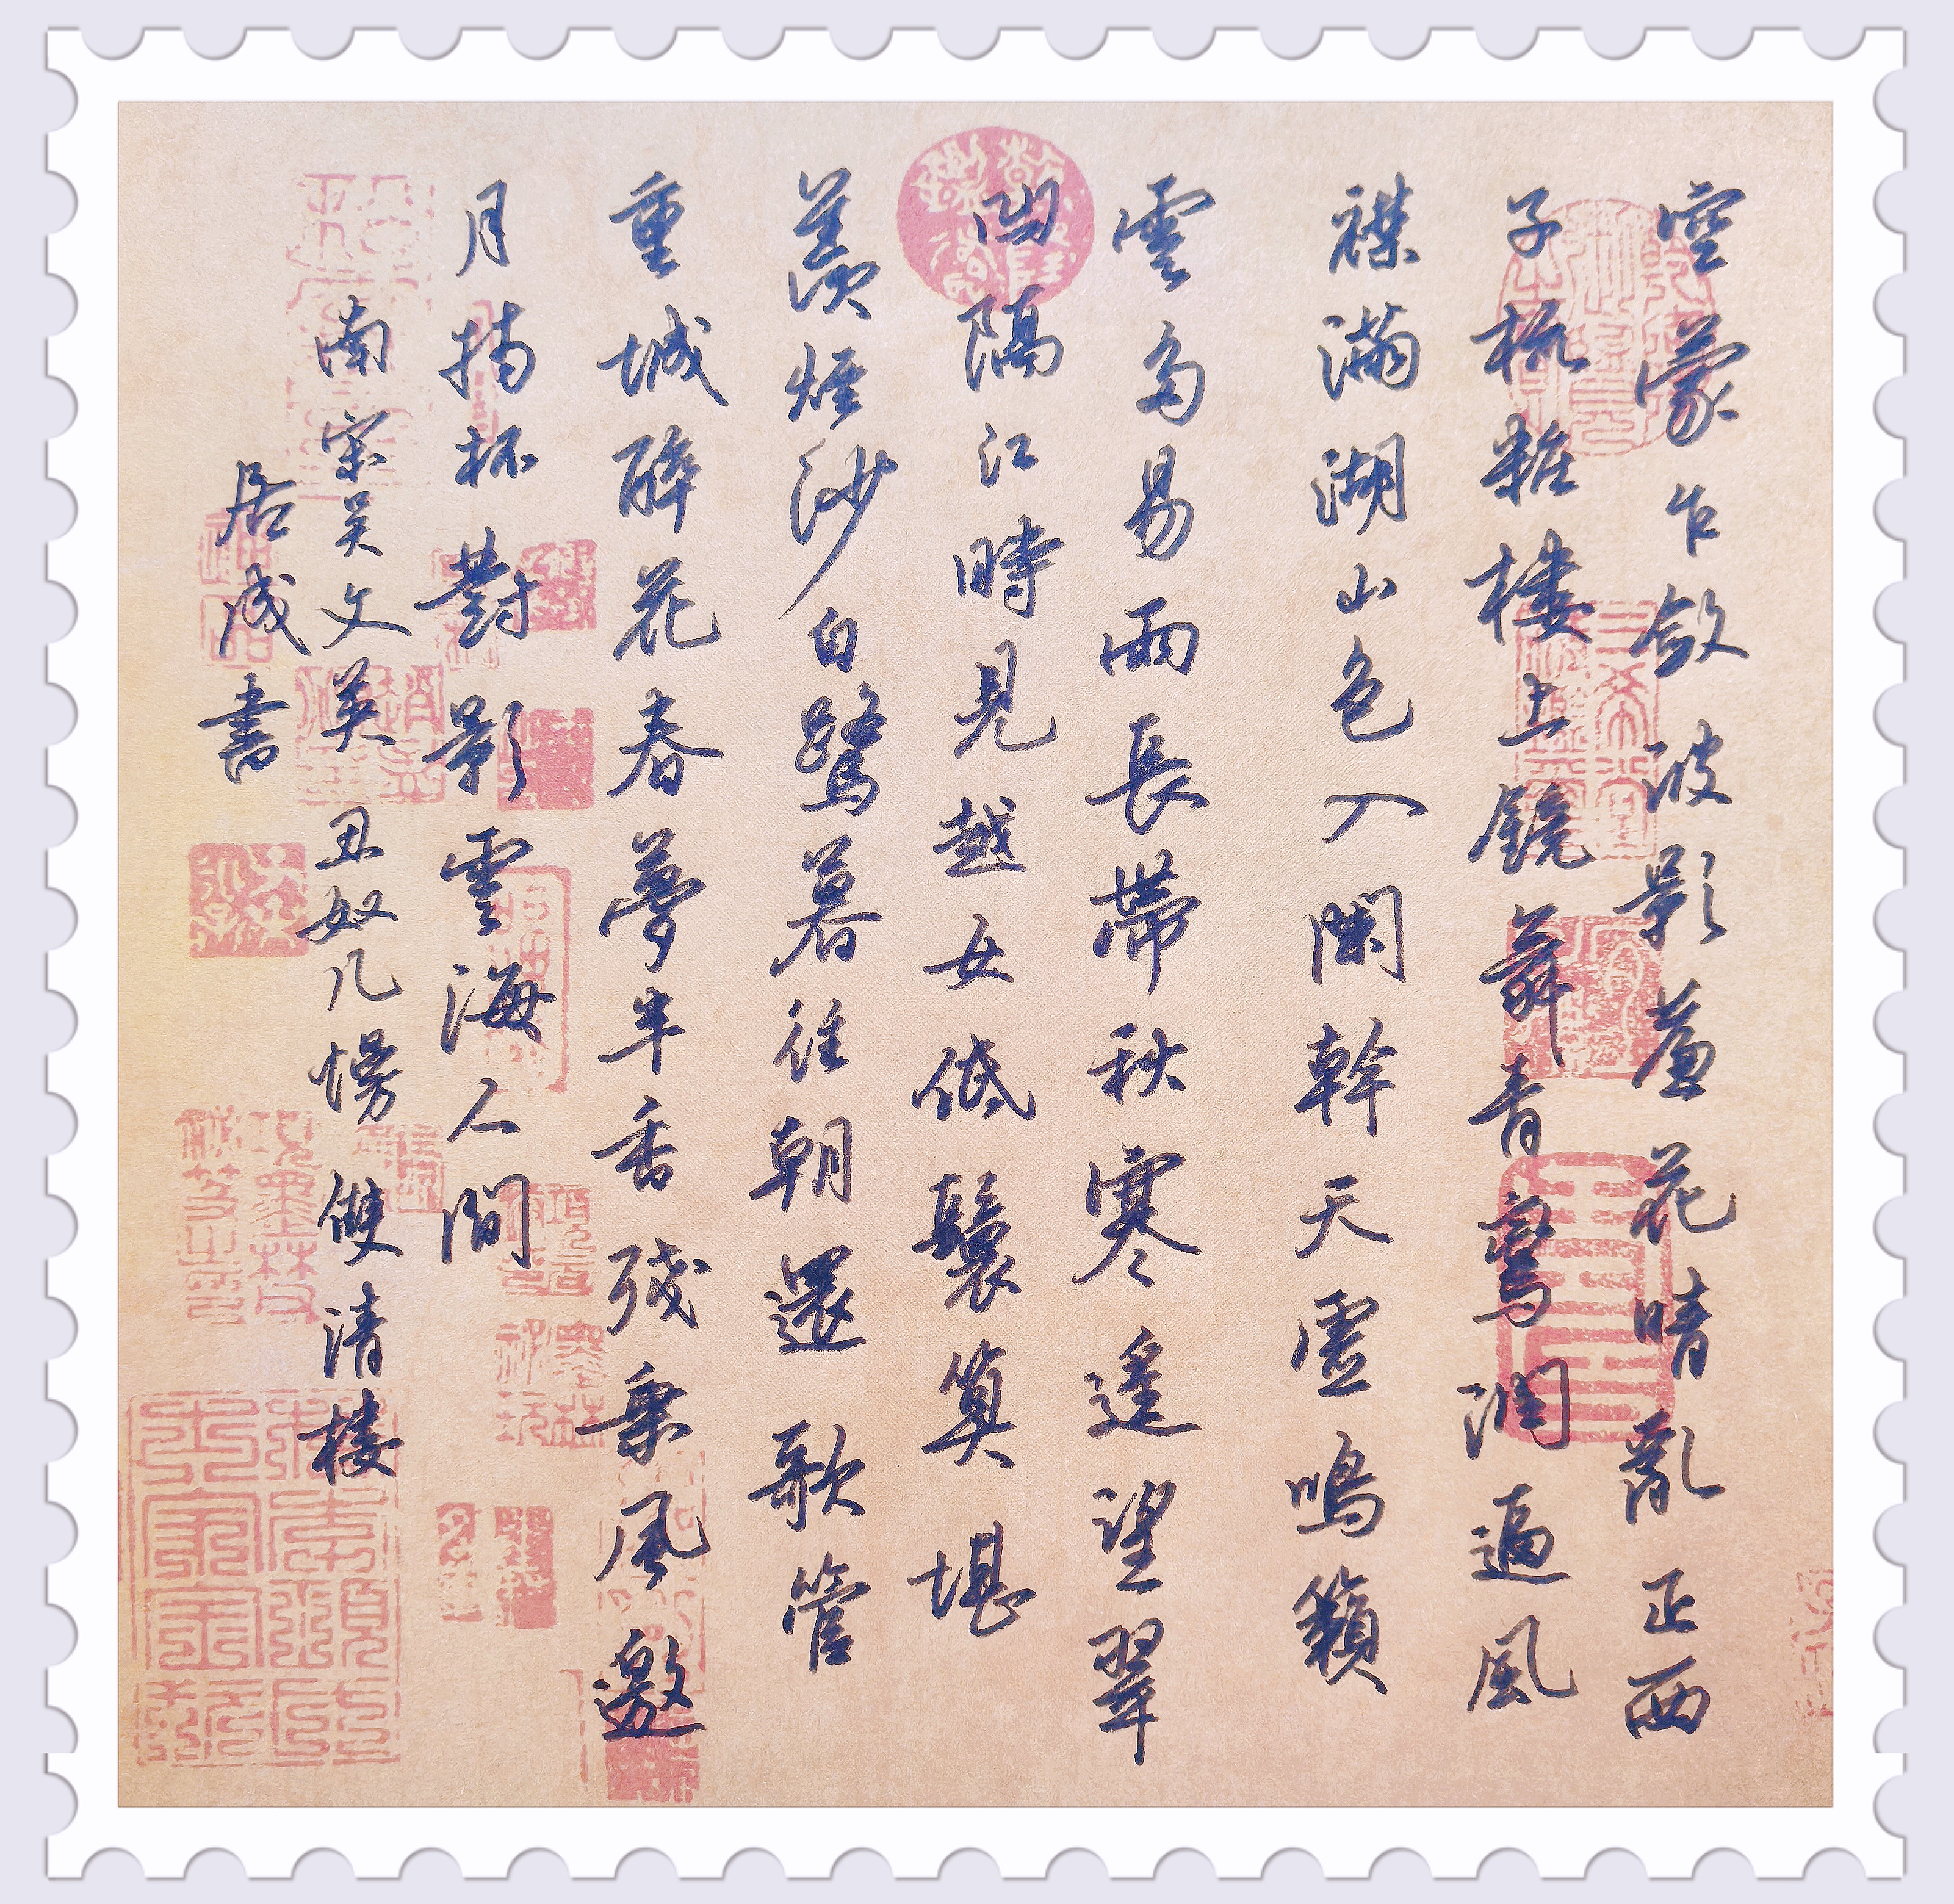 空蒙乍斂波影簾花晴亂正西
子梳粧樓上鏡舞青鸞潤逼風
襟滿湖山色入闌幹天虛鳴籟
雲多易雨長帶秋寒遙望翠
凹隔江時見越女低鬟算堪
羨煙沙白鷺暮往朝還歌管
重城醉花春夢半香殘乘風邀
月持杯對影雲海人間
南宋吴文英丑奴儿慢雙清樓
居成書